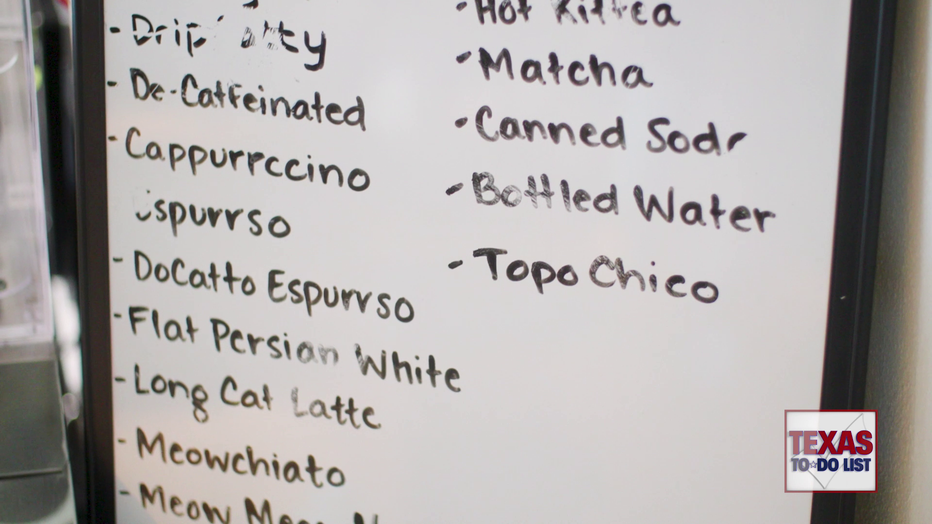 - Drip
- De-Catfeinated
- Cappurrccino
spurrso
- DoCatto Espurrso
- Flat Persian White
- Long Cat Latte
- Meowchiato
- Meow Meow
- Hot Kittea
- Matcha
- Canned Soda
- Bottled Water
- Topo Chico
TEXAS
TO DO LIST